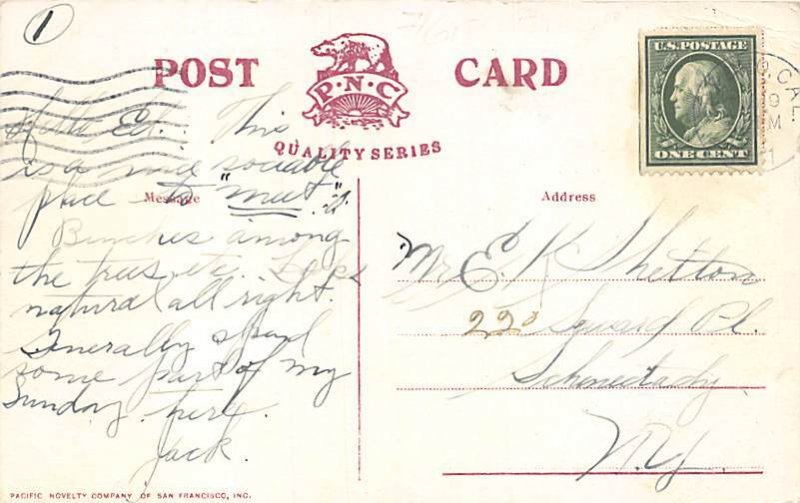 1
POST CARD
P·N·C
QUALITY SERIES
U.S. POSTAGE
ONE CENT
CAL
9
M
1
Ed. This
is a nice sociable
place to "meet".
Message
Address
Benches among
the trees etc. Looks
natural all right.
Generally spend
some part of my
Sunday here.
Jack.
Mr. E. K. Shelton
220 Seward Pl.
Schenectady
N.Y.
PACIFIC NOVELTY COMPANY OF SAN FRANCISCO, INC.